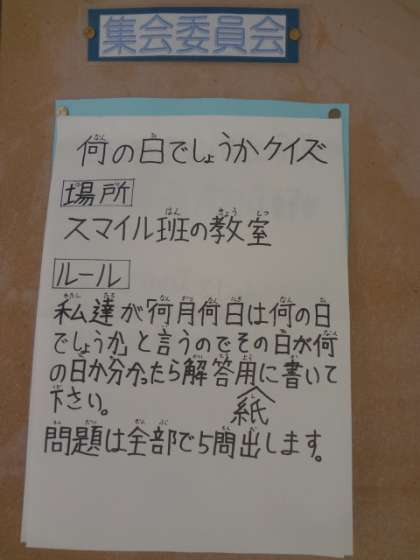 集会委員会
何の日でしょうかクイズ
場所
スマイル班の教室
ルール
私達が「何月何日は何の日
でしょうか」と言うのでその日が何
の日か分かったら解答用紙に書いて
下さい。
問題は全部で5問出します。